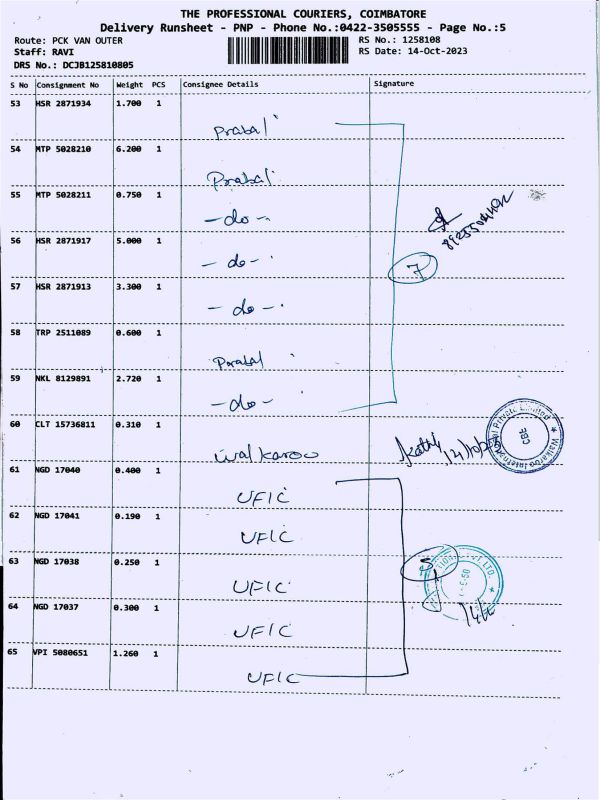 THE PROFESSIONAL COURIERS, COIMBATORE
Delivery Runsheet - PNP - Phone No.:0422-3505555 - Page No.:5
Route: PCK VAN OUTER RS No.: 1258108
Staff: RAVI RS Date: 14-Oct-2023
DRS No.: DCJB125810805
S No Consignment No Weight PCS Consignee Details Signature
53 HSR 2871934 1.700 1
Prabal
54 MTP 5028210 6.200 1
Prabal
55 MTP 5028211 0.750 1
-do-
56 HSR 2871917 5.000 1
-do-
7
57 HSR 2871913 3.300 1
-do-
58 TRP 2511089 0.600 1
Prabal
59 NKL 8129891 2.720 1
-do-
60 CLT 15736811 0.310 1
Walkaroo
Walkaroo International Private Limited
CBE
61 NGD 17040 0.400 1
UFIC
62 NGD 17041 0.190 1
UFIC
63 NGD 17038 0.250 1
5
UFIC
64 NGD 17037 0.300 1
UFIC
65 VPI 5080651 1.260 1
UFIC